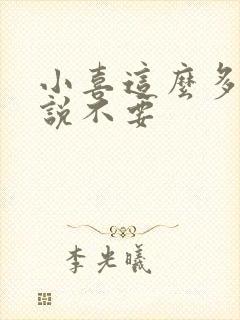 小喜這麼多
說不要
李光曦